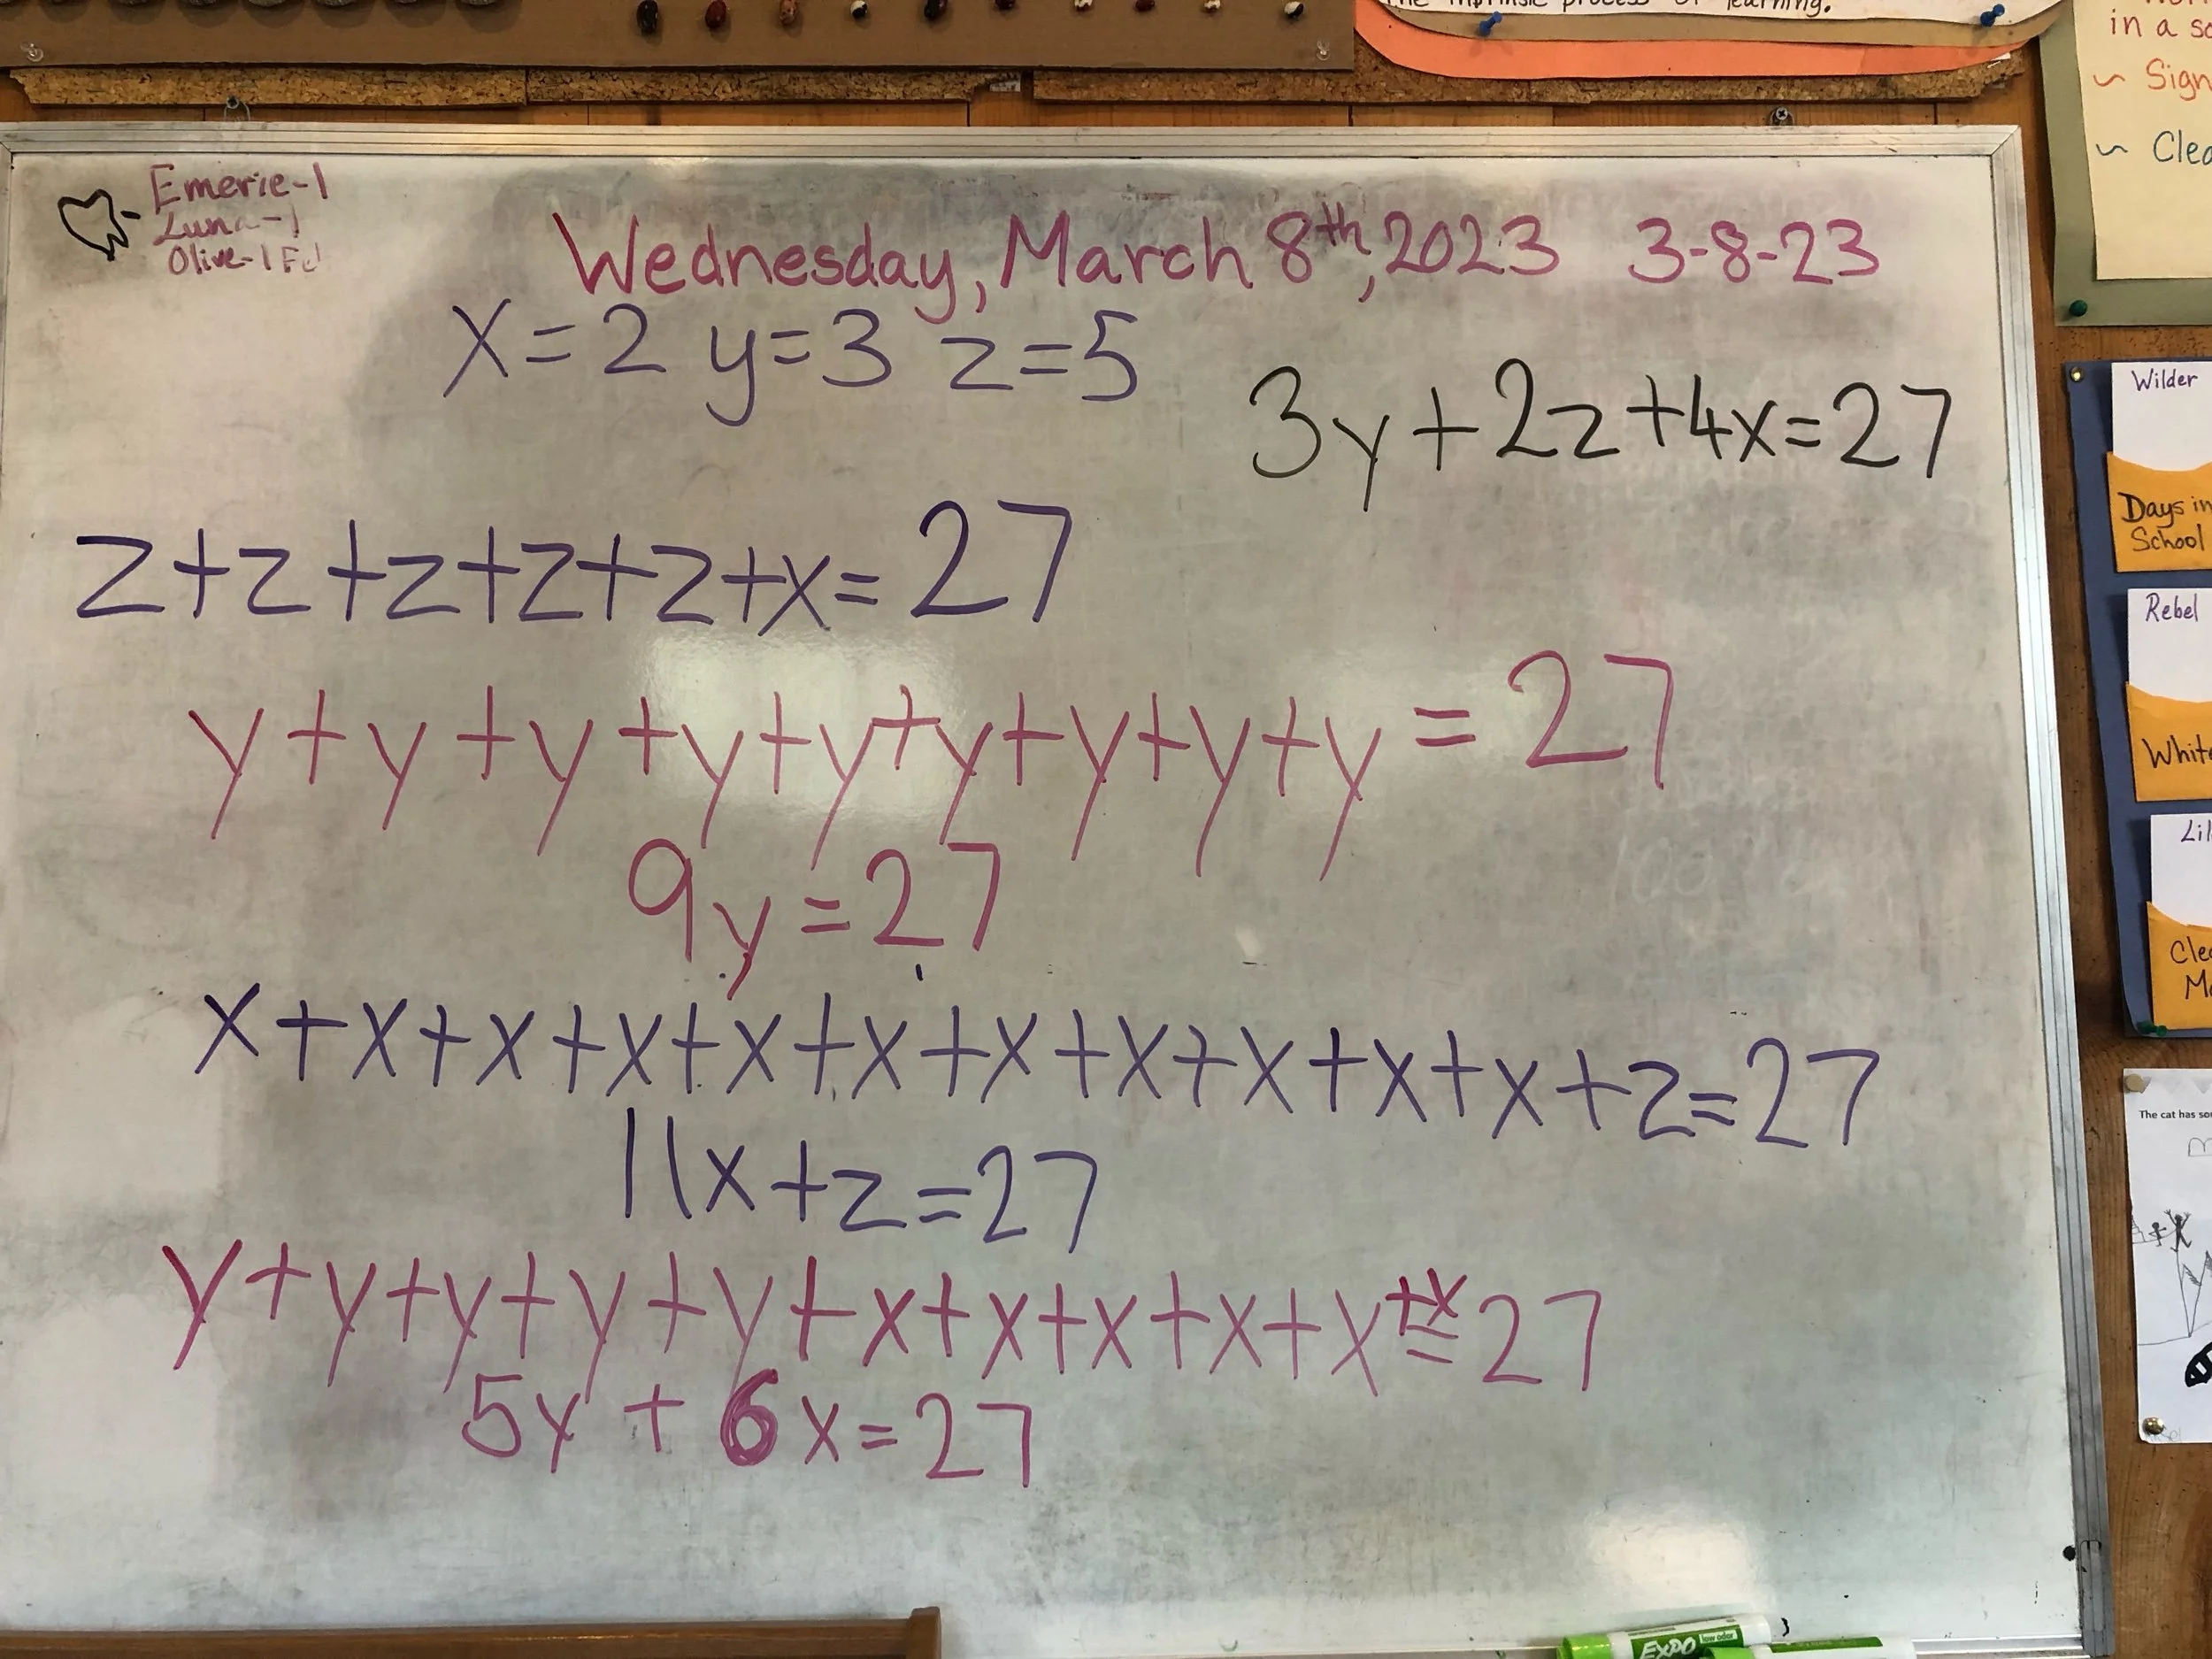 the intrinsic process of learning.
in a
Sign
Emerie-1
Luna-1
Olive-1
Wednesday, March 8th, 2023 3-8-23
x=2 y=3 z=5
3y+2z+4x=27
z+z+z+z+z+x=27
y+y+y+y+y+y+y+y+y=27
9y=27
x+x+x+x+x+x+x+x+x+x+x+z=27
11x+z=27
y+y+y+y+y+x+x+x+x+x+x=27
5y+6x=27
Wilder
Days in
School
Rebel
The cat has
EXPO
low odor